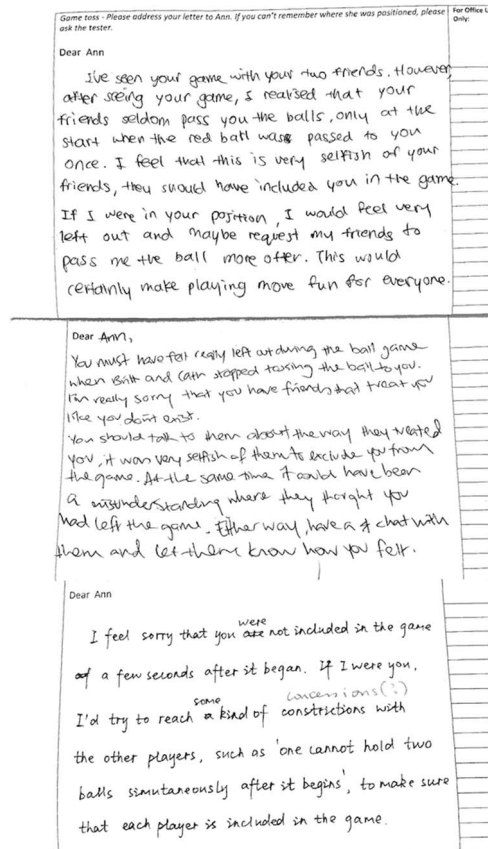 Game toss - Please address your letter to Ann. If you can't remember where she was positioned, please
ask the tester.
For Office U
Only:
Dear Ann
I've seen your game with your two friends. However,
after seeing your game, I realised that your
friends seldom pass you the balls, only at the
start when the red ball was passed to you
once. I feel that this is very selfish of your
friends, they should have included you in the game.
If I were in your position, I would feel very
left out and maybe request my friends to
pass me the ball more ofter. This would
certainly make playing more fun for everyone.
Dear Ann,
You must have felt really left out during the ball game
when Britt and Cath stopped tossing the ball to you.
I'm really sorry that you have friends that treat you
like you don't exist.
You should talk to them about the way they treated
you, it was very selfish of them to exclude you from
the game. At the same time it could have been
a misunderstanding where they thought you
had left the game. Either way, have a chat with
them and let them know how you felt.
Dear Ann
were
I feel sorry that you are not included in the game
of a few seconds after it began. If I were you,
some concessions(?)
I'd try to reach a kind of constrictions with
the other players, such as 'one cannot hold two
balls simutaneously after it begins', to make sure
that each player is included in the game.